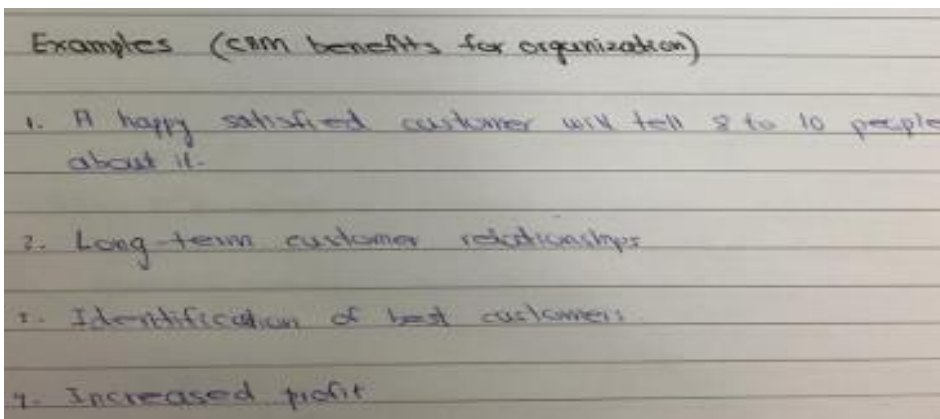 Examples (CRM benefits for organization)
1. A happy satisfied customer will tell 8 to 10 people
about it.
2. Long-term customer relationships
3. Identification of best customers
4. Increased profit